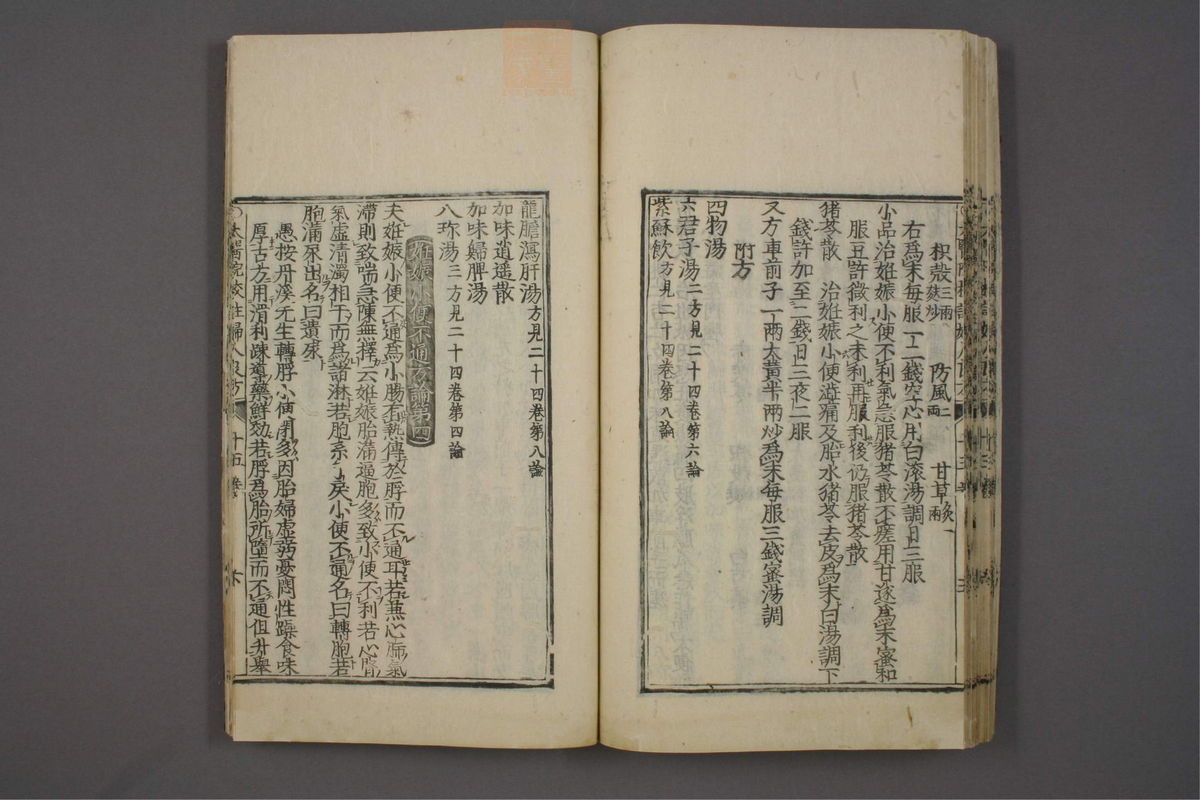 枳殼三兩麩炒 防風二兩 甘草炙一兩
右爲末每服一二錢空心用白滾湯調日三服
小品治姙娠小便不利氣急服猪苓散不瘥用甘遂爲末蜜和
服豆許微利之未利再服利後仍服猪苓散
猪苓散 治姙娠小便澁痛及胎水猪苓去皮爲末白湯調下
錢許加至二錢日三夜二服
又方車前子一兩大黃半兩炒爲末每服三錢蜜湯調
附方
四物湯
六君子湯二方見二十四卷第六論
紫蘇飲方見二十四卷第八論
龍膽瀉肝湯方見二十四卷第八論
加味逍遥散
加味歸脾湯
八珎湯三方見二十四卷第四論
姙娠小便不通方論第四
夫姙娠小便不通爲小腸有熱傳於脬而不通耳若兼心肺氣
滯則致喘急陳無擇云姙娠胎滿逼胞多致小便不利若心腎
氣虛清濁相干而爲諸淋若胞系了戾小便不通名曰轉胞若
胞滿尿出名曰遺尿
愚按丹溪先生轉脬小便閉多因胎婦虛弱憂悶性躁食味
厚古方用滑利疎導藥鮮効若脬爲胎所墮而不通但升舉
太醫院校註婦人良方 十五卷 六